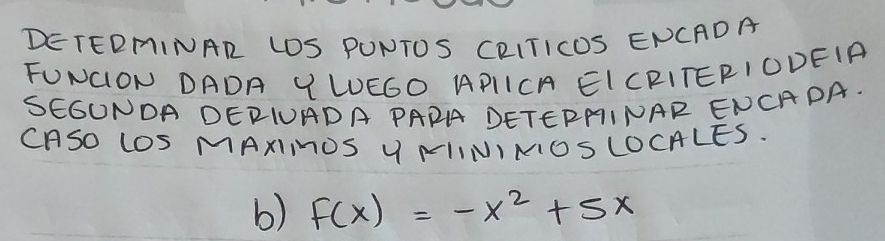 DETERMINAR LOS PUNTOS CRITICOS EN CADA
FUNCION DADA Y LUEGO APLICA El CRITERIO DE lA
SEGUNDA DERIVADA PARA DETERMINAR EN CADA.
CASO LOS MAXIMOS Y MINIMOS LOCALES.
b) F(x) = -x² + 5x